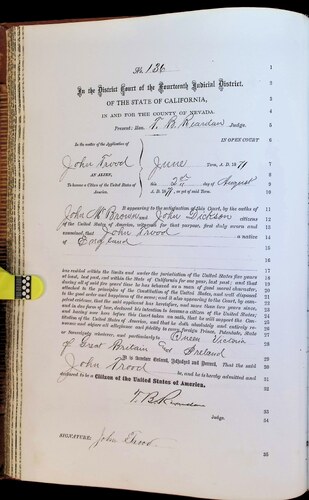 No. 136
In the District Court of the Fourteenth Judicial District,
OF THE STATE OF CALIFORNIA,
IN AND FOR THE COUNTY OF NEVADA.
Present: Hon. T. B. Reardan Judge.
In the matter of the Application of
IN OPEN COURT
John Trood
June Term, A. D. 1871
AN ALIEN,
To become a Citizen of the United States of
America.
this 2nd day of August
A. D. 1871, as yet of said Term.
It appearing to the satisfaction of this Court, by the oaths of
John McBrown and John Dickson citizens
of the United States of America, witnesses for that purpose, first duly sworn and
examined that John Trood a native
of England
has resided within the limits and under the jurisdiction of the United States five years
at least, last past, and within the State of California for one year, last past; and that
during all of said five years' time he has behaved as a man of good moral character,
attached to the principles of the Constitution of the United States, and well disposed
to the good order and happiness of the same; and it also appearing to the Court, by com-
petent evidence, that the said applicant has heretofore, and more than two years since,
and in due form of law, declared his intention to become a citizen of the United States;
and having now here before this Court taken an oath, that he will support the Con-
stitution of the United States of America, and that he doth absolutely and entirely re-
nounce and abjure all allegiance and fidelity to every Foreign Prince, Potentate, State
or Sovereignty whatever, and particularly to Queen Victoria
of Great Britain & Ireland
It is therefore Ordered, Adjudged and Decreed, That the said
John Trood be, and he is hereby admitted and
declared to be a Citizen of the United States of America.
T. B. Reardan
Judge.
SIGNATURE: John Trood